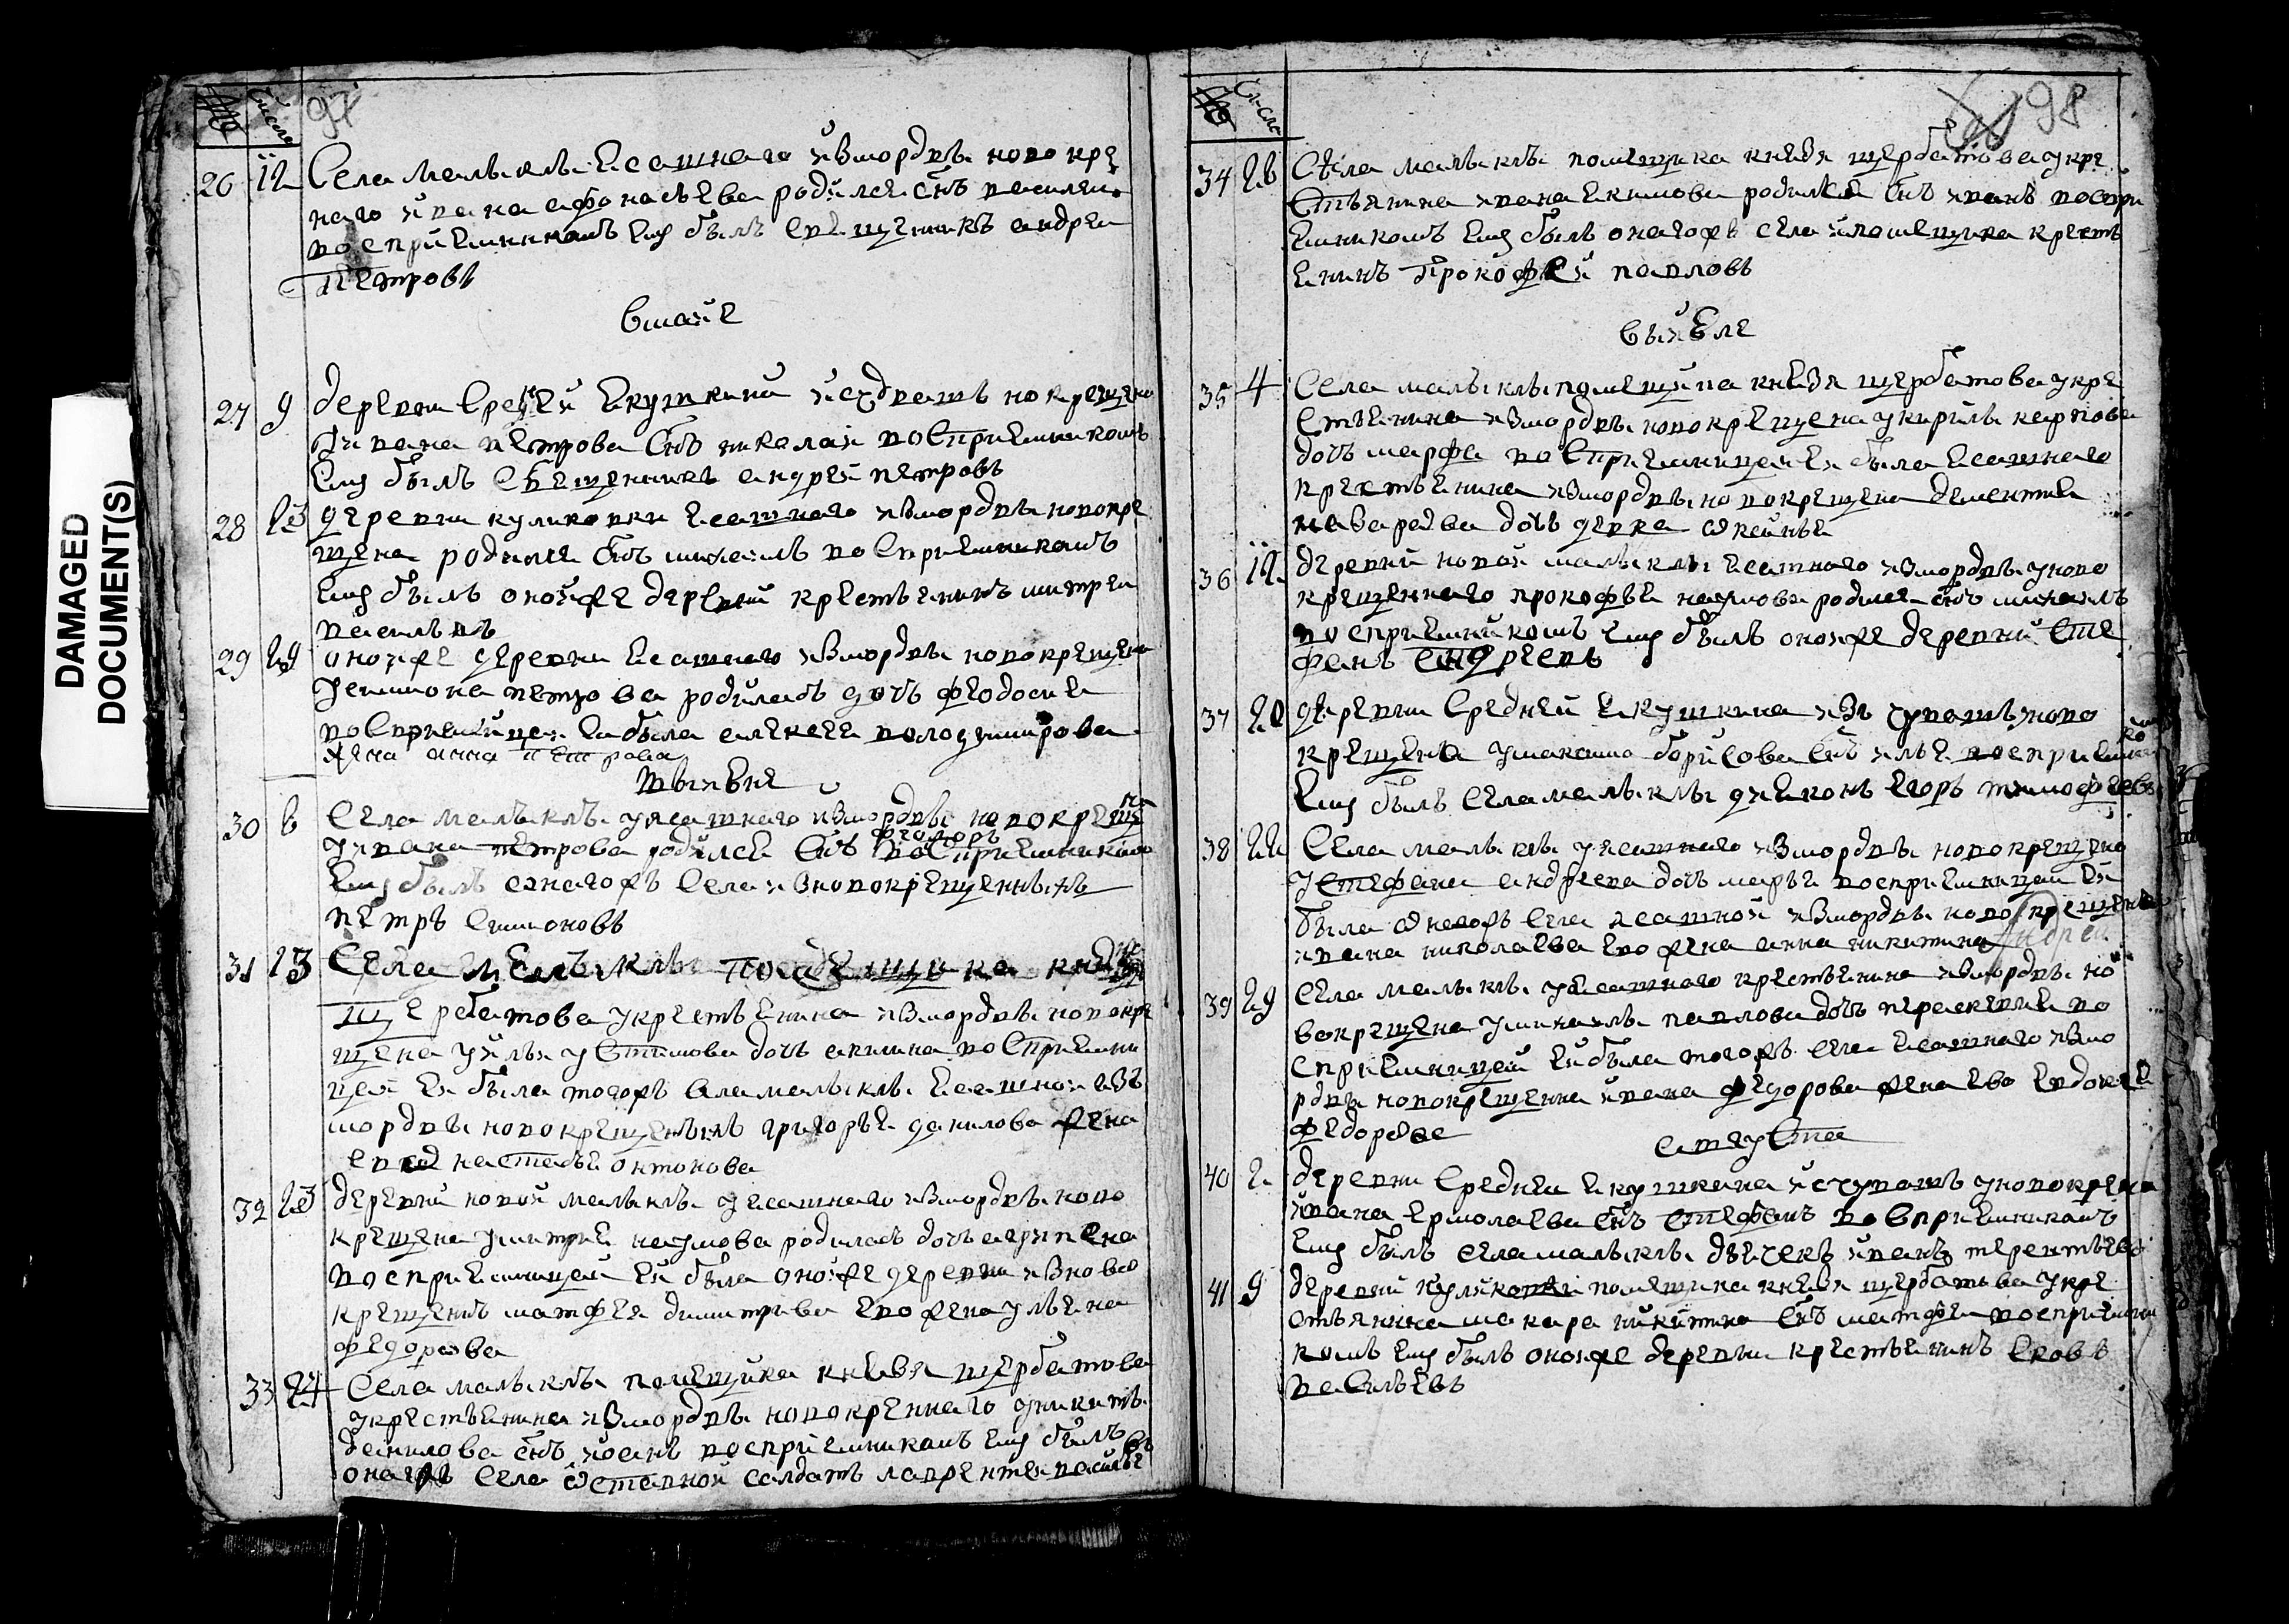 DAMAGED
DOCUMENT(S)
№ Числа 97
26 Села Малыклы ясашнаго измордвы новокре
наго ивана афонасьева родился снъ василеи
восприемникомъ ему былъ священникъ андреи
Петровъ
вмаие
27 9 деревни Средней Якушкина исчювашъ новокрещено
ивана петрова снъ николаи восприемникомъ
ему былъ священникъ андреи петровъ
28 деревни куликовки ясашнаго измордвы новокре
щена родился снъ михаилъ восприемникомъ
ему былъ оноиже деревни крестьянинъ митреи
29 оноиже деревни ясашнаго измордвы новокрещена
петрова родилась дочь феодосия
восприемницеи еи была алексея володимирова
жена анна петрова
виюне
30 в Села малыклы уясашнаго измордвы новокреще
уивана петрова родился снъ федоръ восприемникомъ
ему былъ онагожъ села изновокрещенныхъ
петръ симоновъ
31 Села малыклы помещика князя
Щербатова укрестьянина измордвы новокре
щена дочь акилина восприемни
цеи еи была тогожъ села малыклы ясашнои изъ
мордвы новокрещеныхъ григорья данилова жена
ево настасья онтонова
32 деревни новои малыклы уясашнаго измордвы ново
крещена умитрия наумова родилась дочь агрипена
восприемницеи еи была оноиже деревни изново
крещенъ матфея димитрива ево жена ульяна
федорова
33 Села малыклы помещика князя щербатова
укрестьянина измордвы новокреннаго уникиты
данилова снъ иванъ восприемникомъ ему былъ
онагожъ села отставнои салдатъ лаврентеи василье
№ Числа 98
34 Села малыклы помещика князя щербатова укре
стьянина ивана екимова родился снъ иванъ воспри
емникомъ ему былъ онагожъ села ипомещика кресть
янинъ Прокофеи павловъ
виюле
35 4 Села малыклы помещика князя щербатова укре
стьянина измордвы новокрещена укирилы карпова
дочь марфа восприемницеи еи была ясашнаго
крестьянина измордвы новокрещена дементия
назарова дочь девка
36 деревни новои малыклы ясашнаго измордвы уново
крещеннаго прокофья наумова родился снъ михаилъ
восприемникомъ ему былъ оноиже деревни Сте
фанъ андреевъ
37 деревни Среднеи Якушкина изъ чювашъ ново
крещена умаксима борисова снъ илья восприемнико
ему былъ села малыклы дьяконъ егоръ тимофеевъ
38 Села малыклы уясашнаго измордвы новокрещено
уСтефана андреева дочь марья восприемницеи еи
была онагожъ села ясашнои измордвы новокрещена
ивана николаева ево жена анна никитина
39 Села малыклы уясашнаго крестьянина измордвы но
вокрещена умихаилы павлова дочь параскевия во
сприемницеи еи была тогожъ села ясашнаго измо
рдвы новокрещенна ивана федорова жена ево евдокея
федорова
августа
40 деревни Среднеи Якушкина исчювашъ уновокрена
ивана ермолаева снъ Стефанъ восприемникомъ
ему былъ села малыклы дьячекъ иванъ терентьевъ
41 9 деревни куликовки помещика князя щербатова укре
стьянина макара никитина снъ матфеи восприемни
комъ ему былъ оноиже деревни крестьянинъ яковъ
васильевъ